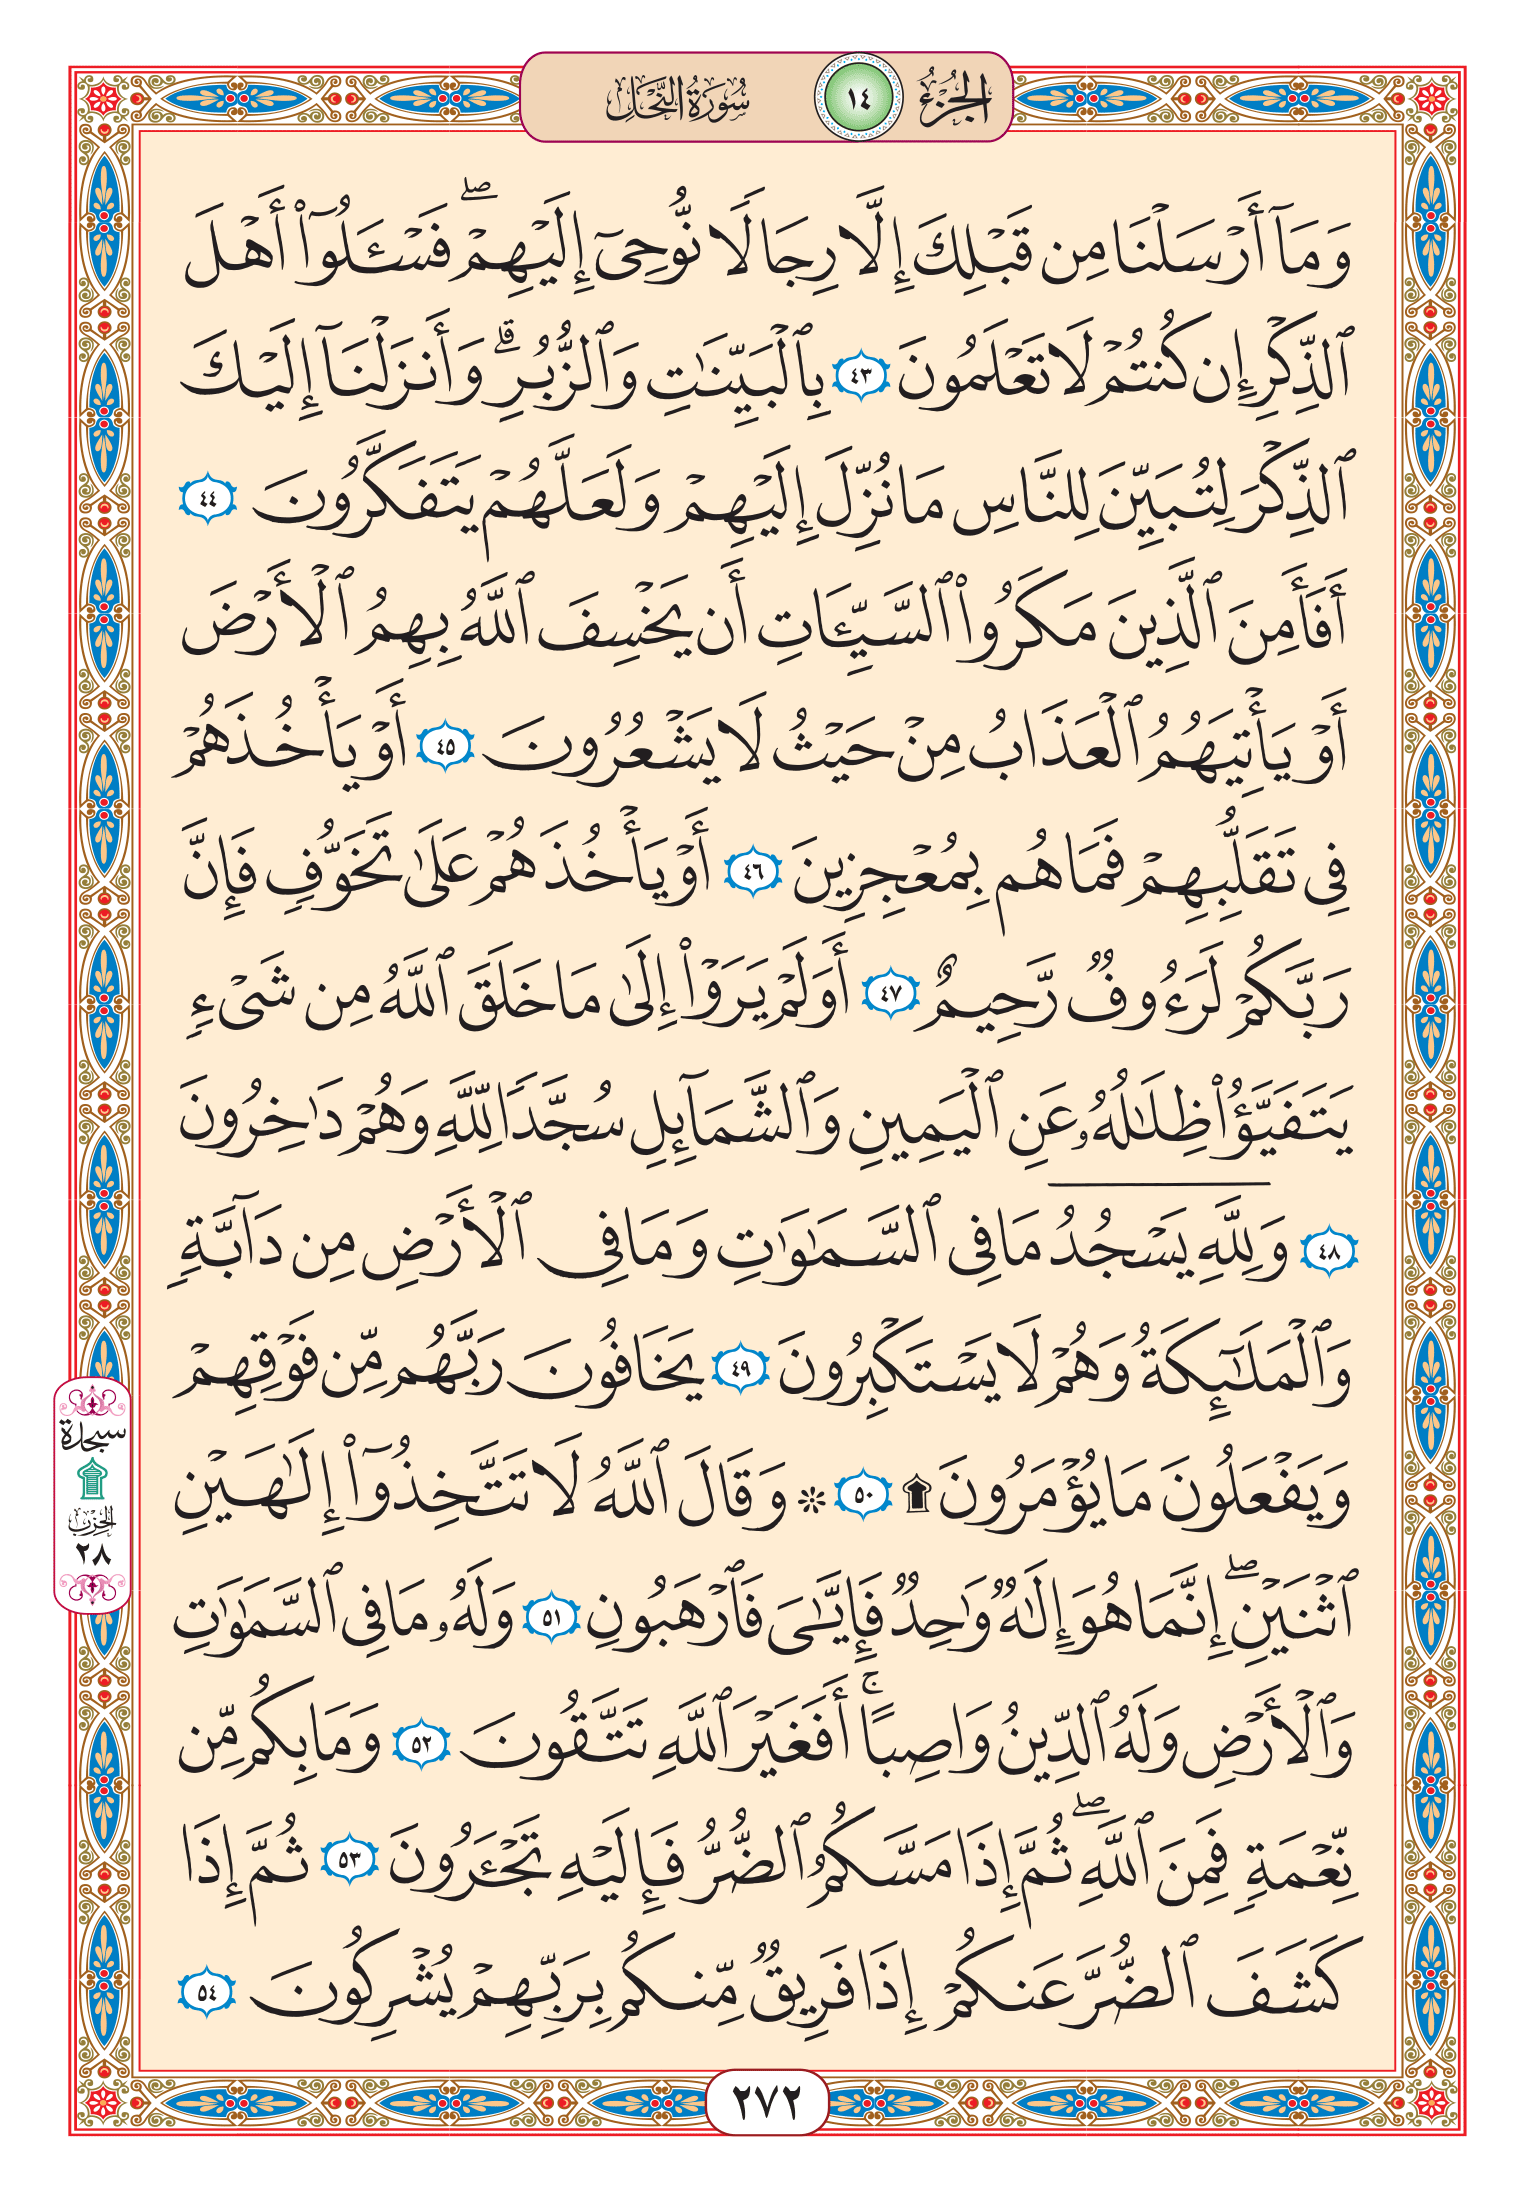 الجزء ١٤ سورة النحل
وَمَآ أَرْسَلْنَا مِن قَبْلِكَ إِلَّا رِجَالًا نُّوحِىٓ إِلَيْهِمْ ۖ فَسْـَٔلُوٓا۟ أَهْلَ
ٱلذِّكْرِ إِن كُنتُمْ لَا تَعْلَمُونَ ٤٣ بِٱلْبَيِّنَـٰتِ وَٱلزُّبُرِ ۗ وَأَنزَلْنَآ إِلَيْكَ
ٱلذِّكْرَ لِتُبَيِّنَ لِلنَّاسِ مَا نُزِّلَ إِلَيْهِمْ وَلَعَلَّهُمْ يَتَفَكَّرُونَ ٤٤
أَفَأَمِنَ ٱلَّذِينَ مَكَرُوا۟ ٱلسَّيِّـَٔاتِ أَن يَخْسِفَ ٱللَّهُ بِهِمُ ٱلْأَرْضَ
أَوْ يَأْتِيَهُمُ ٱلْعَذَابُ مِنْ حَيْثُ لَا يَشْعُرُونَ ٤٥ أَوْ يَأْخُذَهُمْ
فِى تَقَلُّبِهِمْ فَمَا هُم بِمُعْجِزِينَ ٤٦ أَوْ يَأْخُذَهُمْ عَلَىٰ تَخَوُّفٍ فَإِنَّ
رَبَّكُمْ لَرَءُوفٌ رَّحِيمٌ ٤٧ أَوَلَمْ يَرَوْا۟ إِلَىٰ مَا خَلَقَ ٱللَّهُ مِن شَىْءٍ
يَتَفَيَّؤُا۟ ظِلَـٰلُهُۥ عَنِ ٱلْيَمِينِ وَٱلشَّمَآئِلِ سُجَّدًا لِّلَّهِ وَهُمْ دَٰخِرُونَ
٤٨ وَلِلَّهِ يَسْجُدُ مَا فِى ٱلسَّمَـٰوَٰتِ وَمَا فِى ٱلْأَرْضِ مِن دَآبَّةٍ
وَٱلْمَلَـٰٓئِكَةُ وَهُمْ لَا يَسْتَكْبِرُونَ ٤٩ يَخَافُونَ رَبَّهُم مِّن فَوْقِهِمْ
وَيَفْعَلُونَ مَا يُؤْمَرُونَ ۩ ٥٠ ۞ وَقَالَ ٱللَّهُ لَا تَتَّخِذُوٓا۟ إِلَـٰهَيْنِ
ٱثْنَيْنِ ۖ إِنَّمَا هُوَ إِلَـٰهٌ وَٰحِدٌ فَإِيَّـٰىَ فَٱرْهَبُونِ ٥١ وَلَهُۥ مَا فِى ٱلسَّمَـٰوَٰتِ
وَٱلْأَرْضِ وَلَهُ ٱلدِّينُ وَاصِبًا ۚ أَفَغَيْرَ ٱللَّهِ تَتَّقُونَ ٥٢ وَمَا بِكُم مِّن
نِّعْمَةٍ فَمِنَ ٱللَّهِ ۖ ثُمَّ إِذَا مَسَّكُمُ ٱلضُّرُّ فَإِلَيْهِ تَجْـَٔرُونَ ٥٣ ثُمَّ إِذَا
كَشَفَ ٱلضُّرَّ عَنكُمْ إِذَا فَرِيقٌ مِّنكُم بِرَبِّهِمْ يُشْرِكُونَ ٥٤
سجدة
الحزب
٢٨
٢٧٢